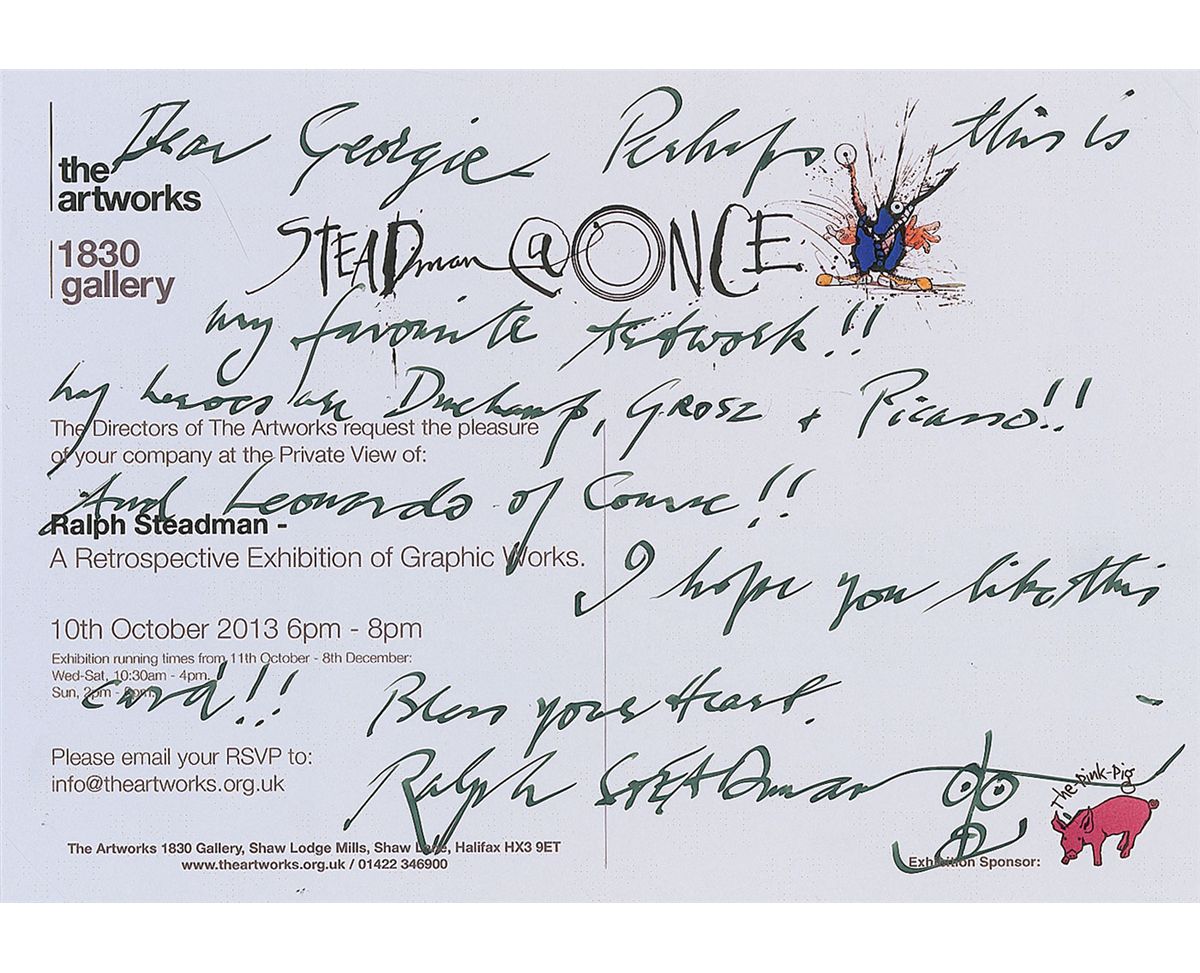 Dear Georgie - Perhaps this is
the
artworks
1830
gallery
STEADman @ ONCE
my favourite Artwork!!
my heroes are Duchamp, GROSZ + Picasso!!
The Directors of The Artworks request the pleasure
of your company at the Private View of:
And Leonardo of Course!!
Ralph Steadman -
A Retrospective Exhibition of Graphic Works.
I hope you like this
10th October 2013 6pm - 8pm
Exhibition running times from 11th October - 8th December:
Wed-Sat, 10:30am - 4pm.
Sun, 2pm -
card!! Bless your Heart.
Please email your RSVP to:
info@theartworks.org.uk
Ralph STEADman
The Pink-Pig
The Artworks 1830 Gallery, Shaw Lodge Mills, Shaw Lane, Halifax HX3 9ET
www.theartworks.org.uk / 01422 346900
Exhibition Sponsor: